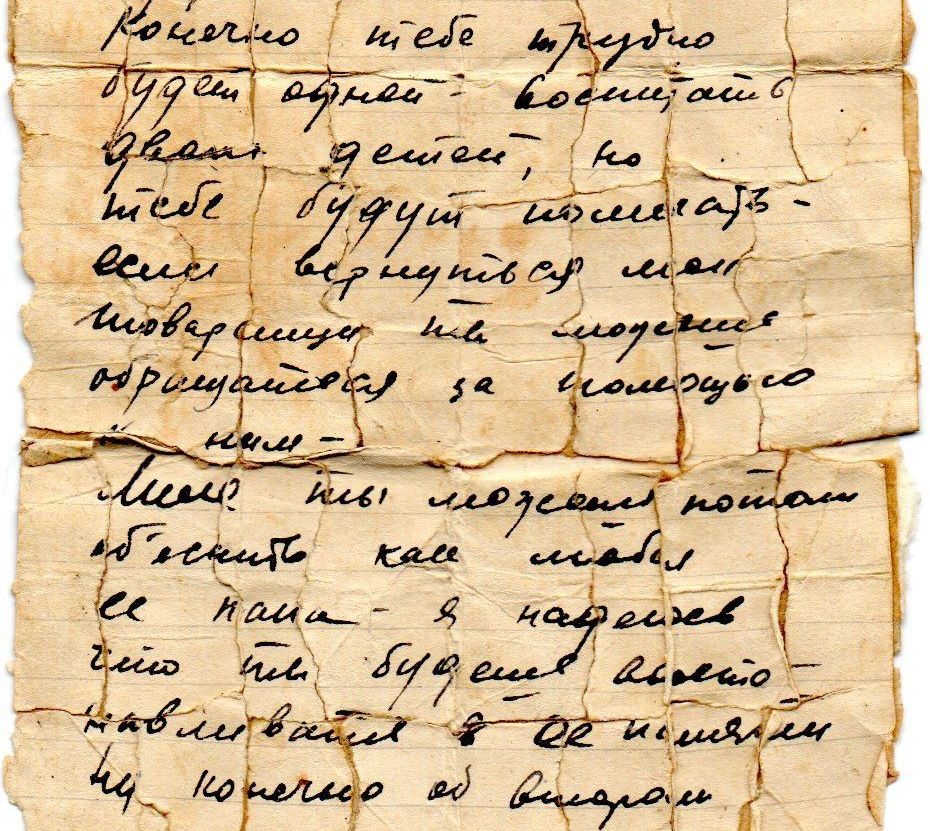 Конечно тебе трудно
будет одной - воспитать
двоих детей, но
тебе будут помогать -
если вернуться мои
товарищи ты можешь
обращаться за помощью
к ним -
ты можешь потом
об'яснить как любил
ее папа - я надеюсь
что ты будешь восста-
навливать в ее памяти
Ну конечно об втором